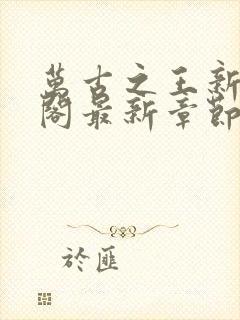 萬古之王新
閣最新章節
於匪